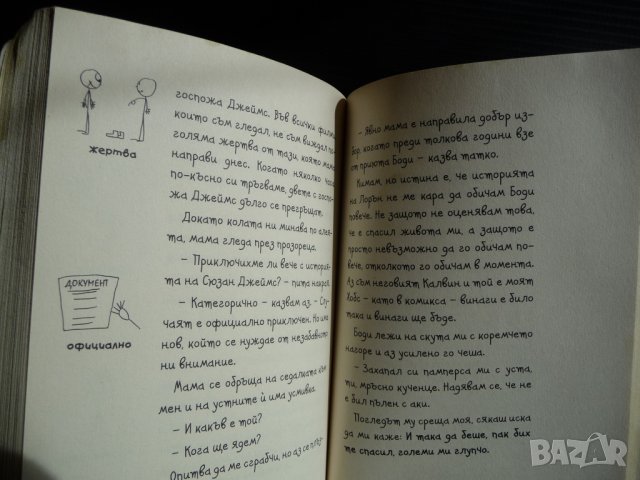 госпожа Джеймс. Във всички филми,
които съм гледал, не съм виждал по-
голяма жертва от тази, която мама
направи днес. Когато няколко часа
по-късно си тръгваме, двете с госпо-
жа Джеймс дълго се прегръщат.
Докато колата ни минава по алея-
та, мама гледа през прозореца.
– Приключихме ли вече с история-
та на Сюзан Джеймс? – пита накрая.
– Категорично – казвам аз. – Слу-
чаят е официално приключен. Но има
нов, който се нуждае от незабавното
ни внимание.
Мама се обръща на седалката към
мен и на устните ѝ има усмивка.
– И какъв е той?
– Кога ще ядем?
Опитва да ме сграбчи, но аз се
жертва
ДОКУМЕНТ
официално
– Явно мама е направила добър из-
бор, когато преди толкова години взе
от приюта Боди – казва татко.
Кимам, но истина е, че историята
на Лорън не ме кара да обичам Боди
повече. Не защото не оценявам това,
че е спасил живота ми, а защото е
просто невъзможно да го обичам по-
вече, отколкото го обичам в момента.
Аз съм неговият Калвин и той е моят
Хобс – като в комикса – винаги е било
така и винаги ще бъде.
Боди лежи на скута ми с коремчето
нагоре и аз усилено го чеша.
– Захапал си памперса ми с уста,
ти, мръсно кученце. Надявам се, че не
е бил пълен с аки.
Погледът му среща моя, сякаш иска
да ми каже: И така да беше, пак бих
те спасил, големи ми глупчо.
BAZAR
bg